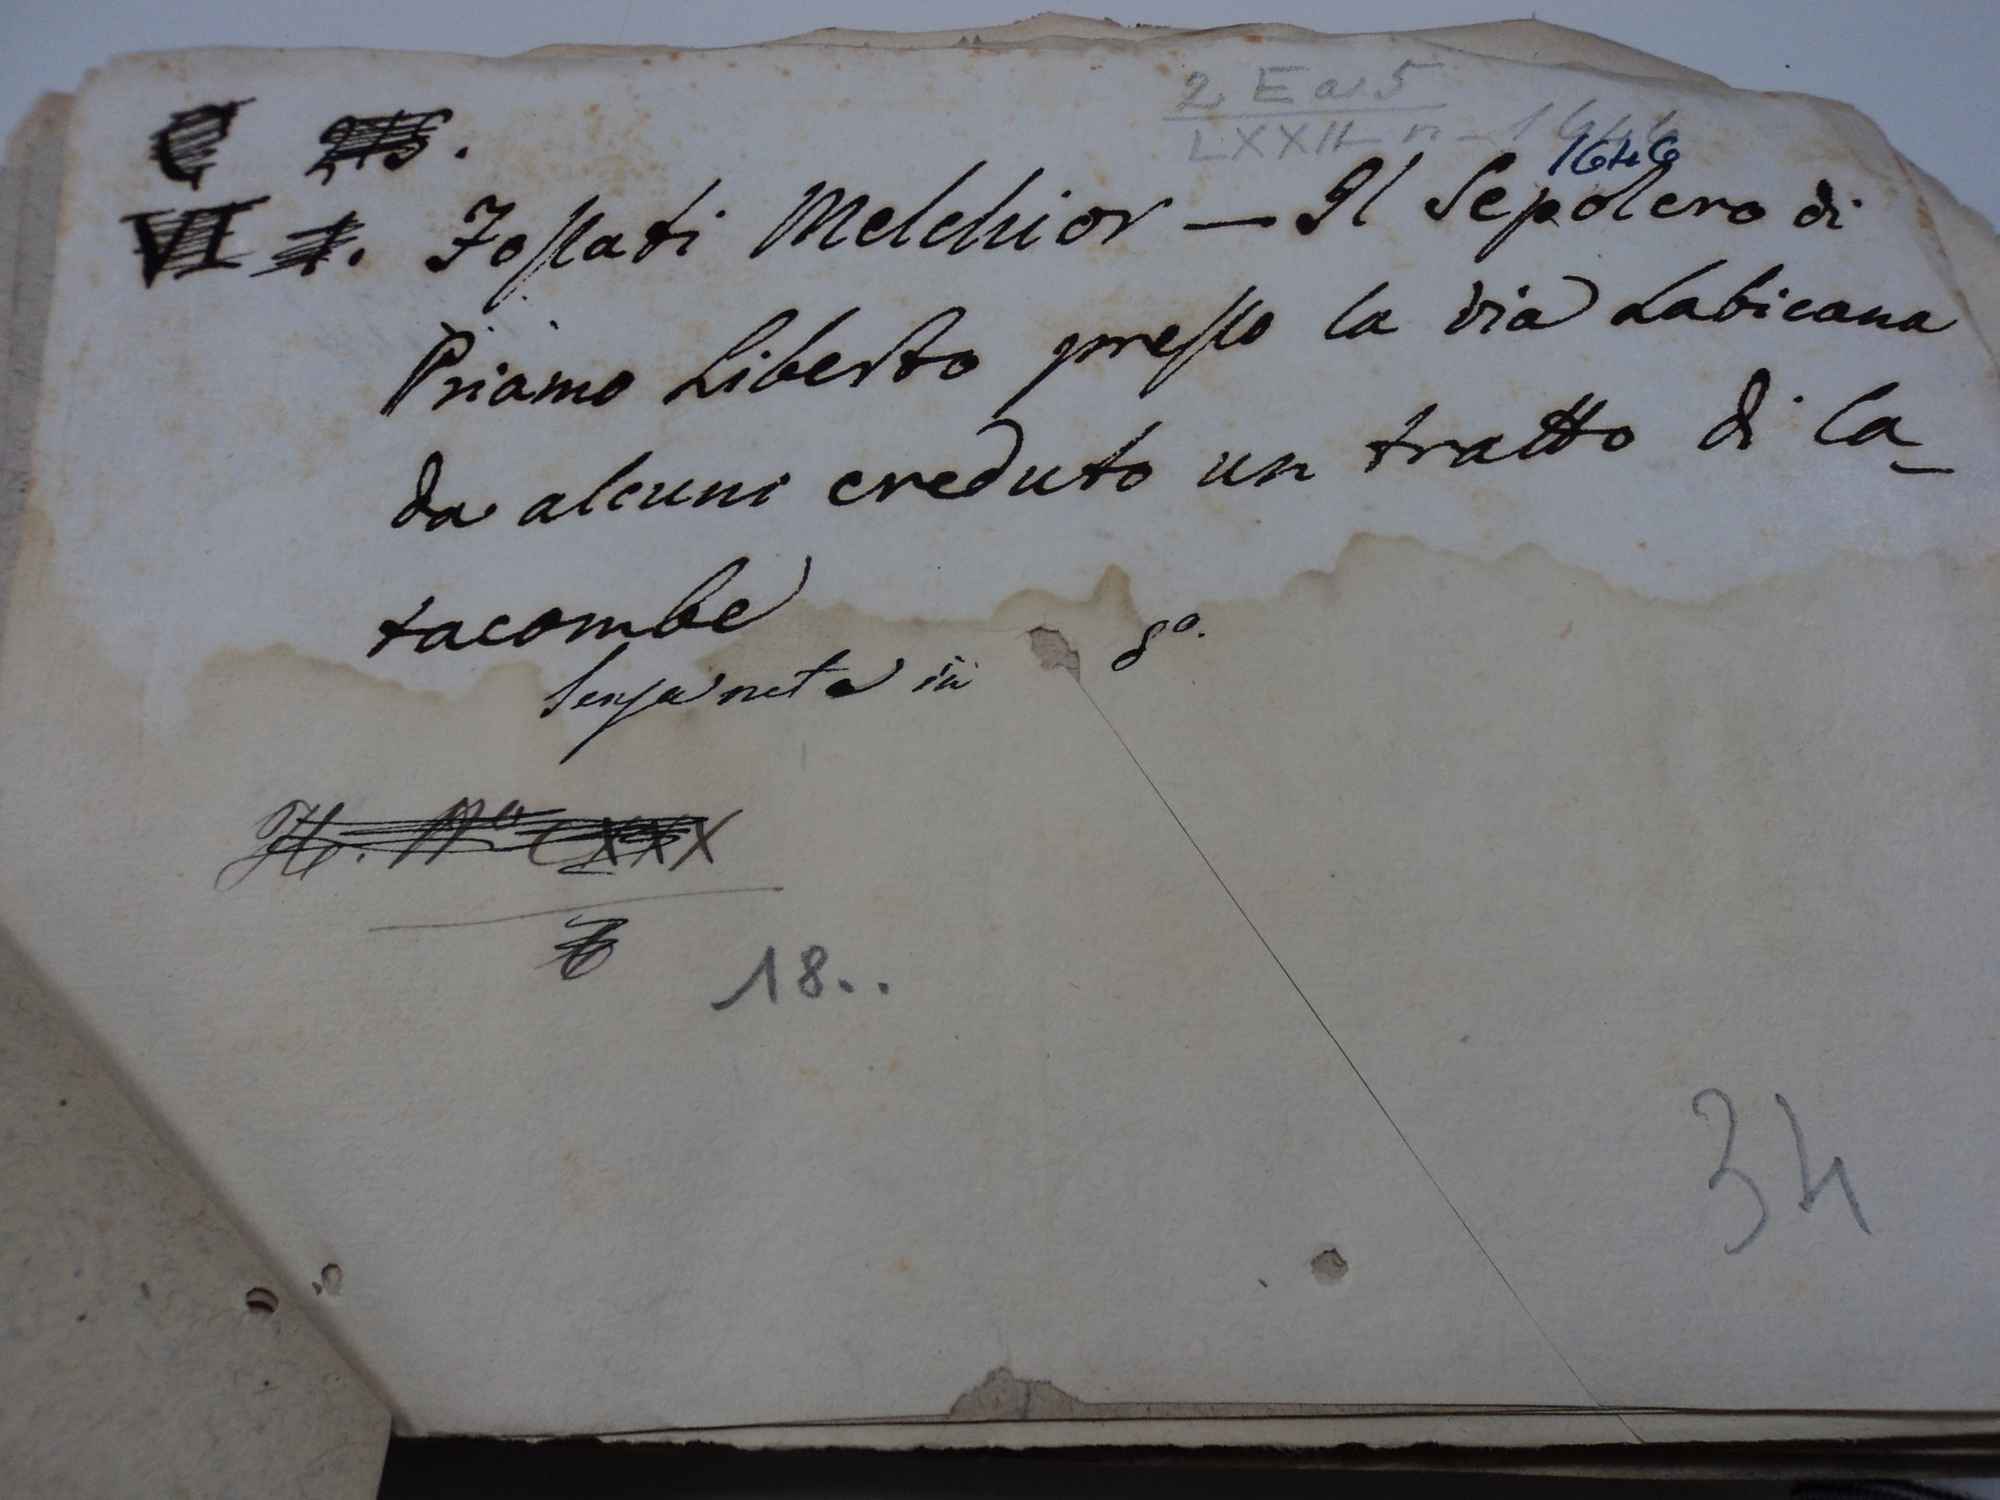 2 E a 5
LXXII n - 1646
1646
C 215.
VI 1. Fossati Melchior — Il Sepolcro di
Priamo Liberto presso la via Labicana
da alcuni creduto un tratto di Ca-
tacombe
Senza nota in 8°.
CXXX
18..
34